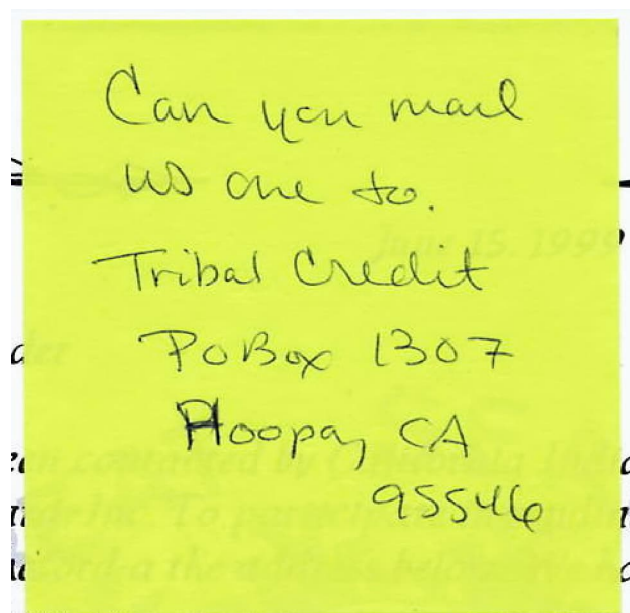 Can you mail
us one to.
Tribal Credit
PO Box 1307
Hoopa, CA
95546
June 15, 1999